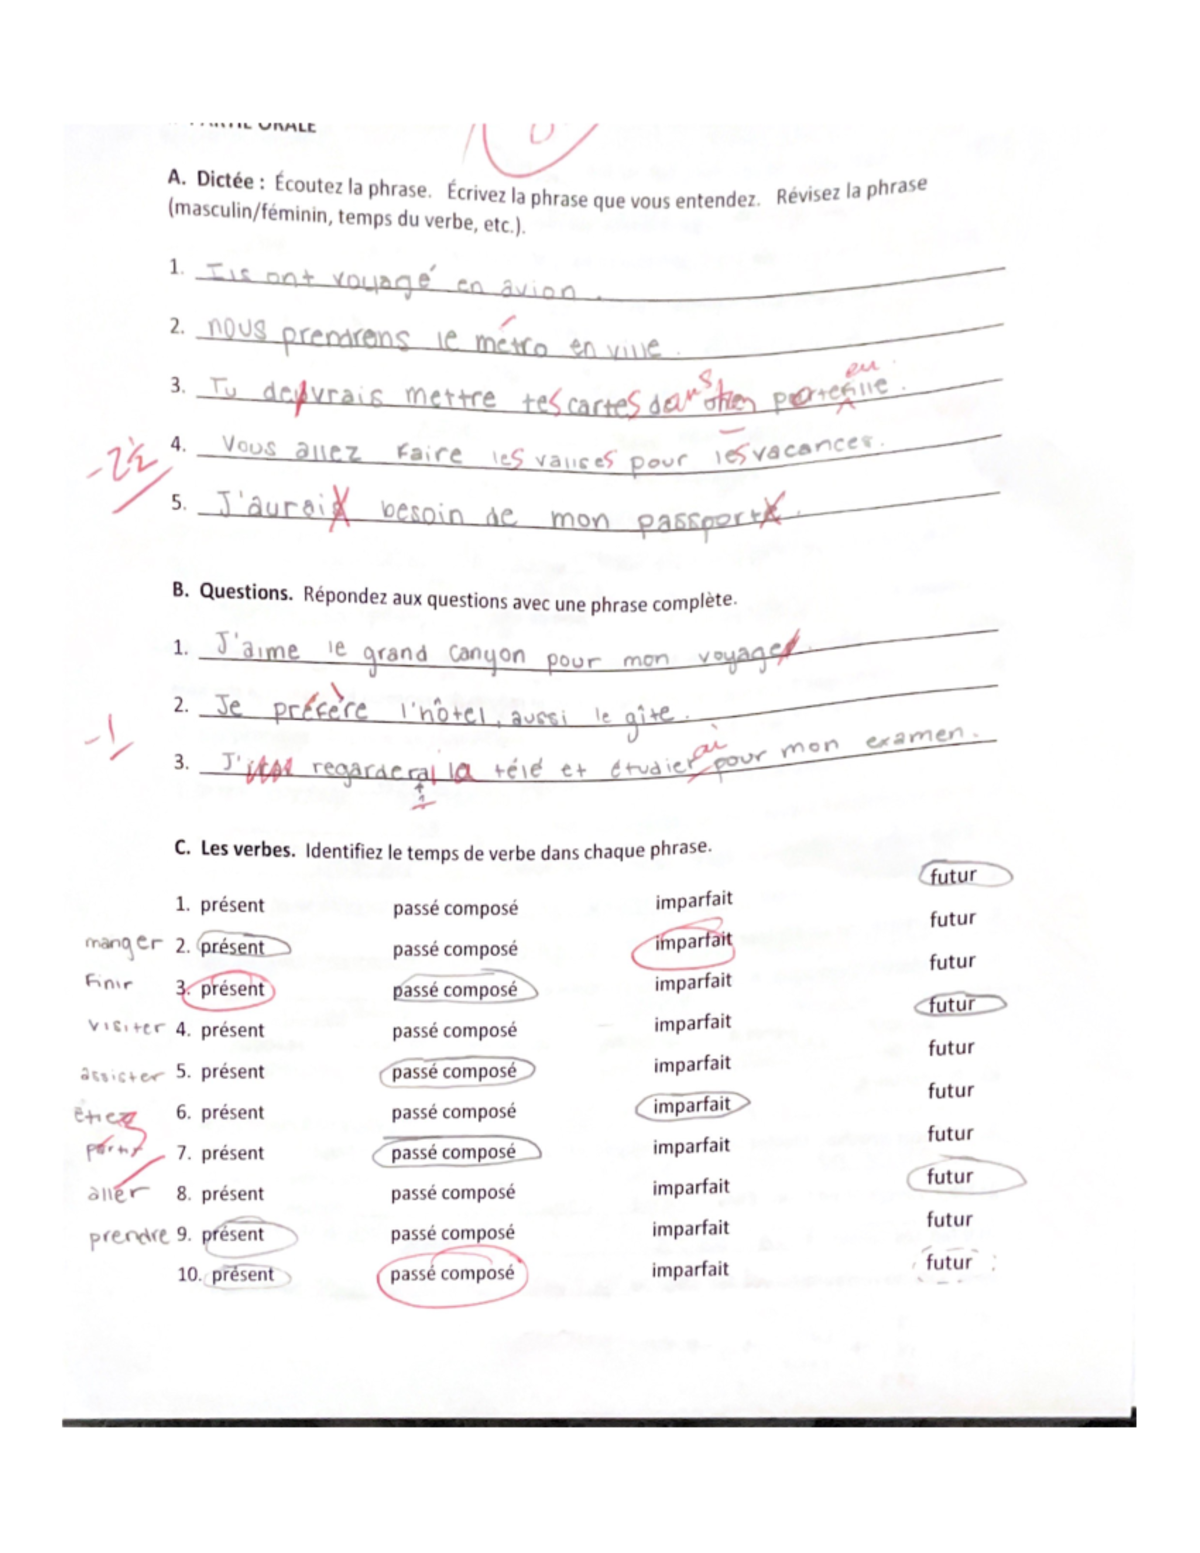 PARTIE ORALE
A. Dictée : Écoutez la phrase. Écrivez la phrase que vous entendez. Révisez la phrase
(masculin/féminin, temps du verbe, etc.).
1. Ils ont voyagé en avion.
2. nous prendrens le métro en ville.
3. Tu devrais mettre tes cartes dans ton porte
eu
-2½
4. Vous allez faire les valises pour les vacances.
5. J'aurais besoin de mon passporte.
B. Questions. Répondez aux questions avec une phrase complète.
1. J'aime le grand canyon pour mon voyage.
2. Je préfère l'hôtel, aussi le gîte.
-1
3. J' regarderai la télé et étudier pour mon examen.
ai
C. Les verbes. Identifiez le temps de verbe dans chaque phrase.
1. présent passé composé imparfait futur
manger 2. présent passé composé imparfait futur
finir 3. présent passé composé imparfait futur
visiter 4. présent passé composé imparfait futur
assister 5. présent passé composé imparfait futur
6. présent passé composé imparfait futur
partir 7. présent passé composé imparfait futur
aller 8. présent passé composé imparfait futur
prendre 9. présent passé composé imparfait futur
10. présent passé composé imparfait futur